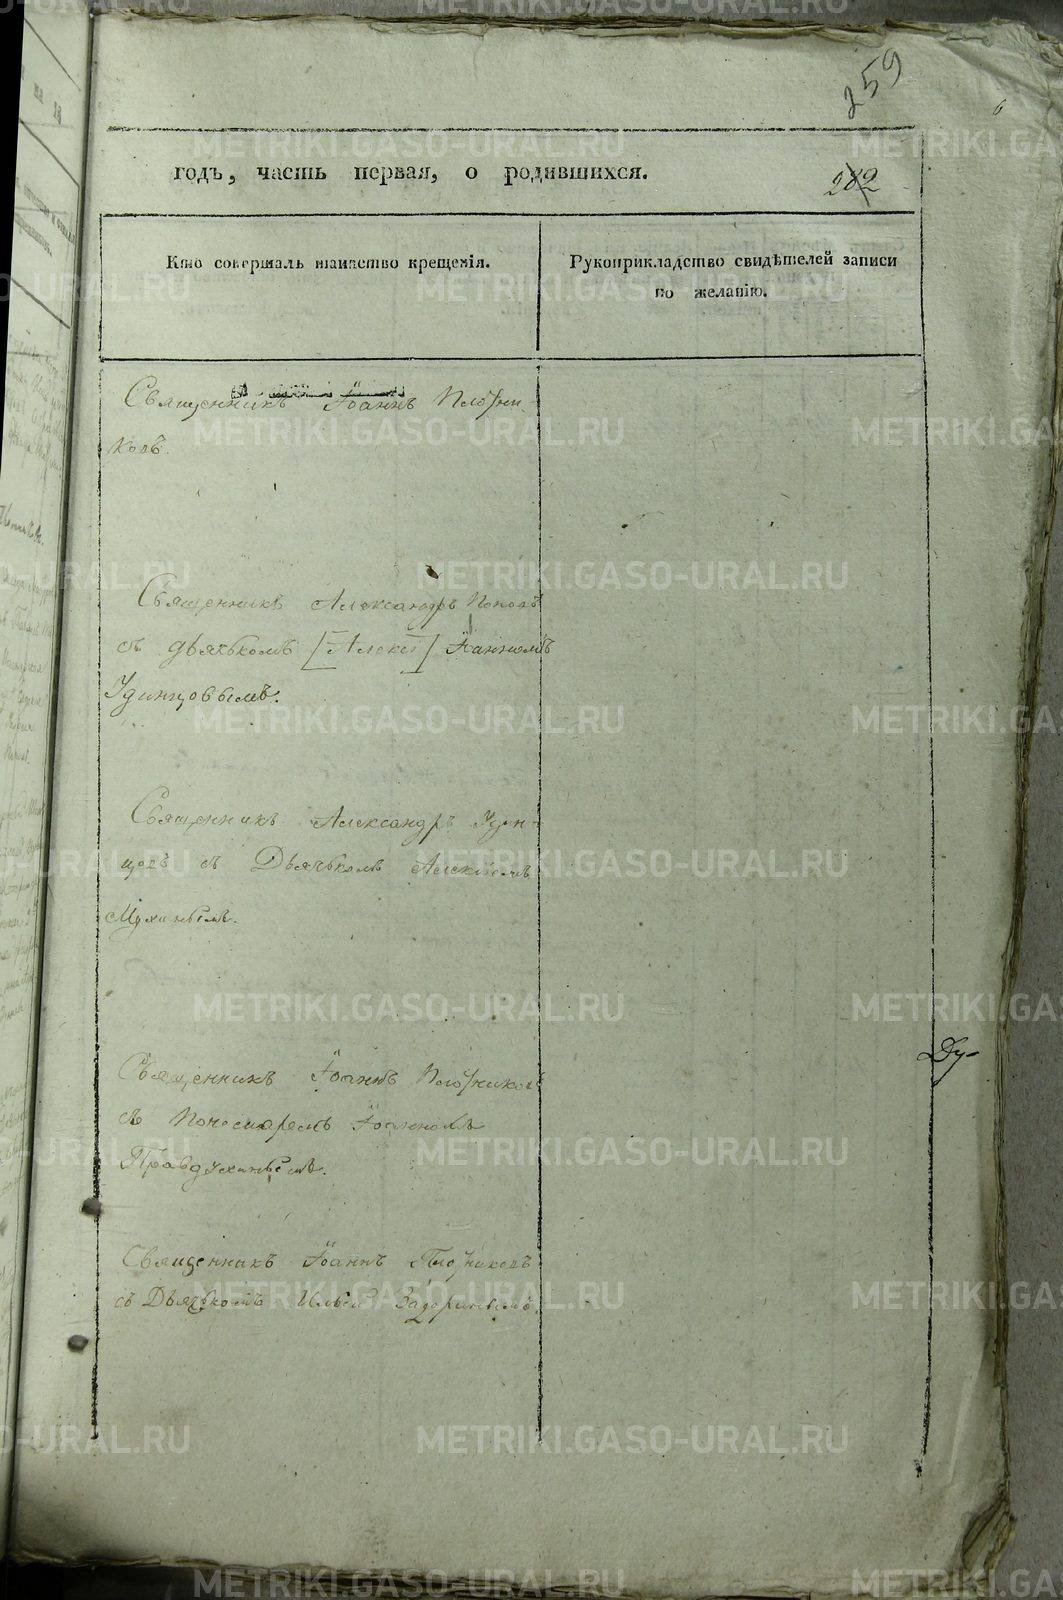 259
годъ, часть первая, о родившихся.
282
Кто совершалъ таинство крещенія.
Рукоприкладство свидѣтелей записи
по желанію.
Священникъ Іоаннъ Плотни
ковъ.
Священникъ Александръ Поповъ
съ дьячькомъ [Алексѣ] Іанномъ
Удинцовымъ.
Священникъ Александръ Удин-
цовъ съ Дьячькомъ Алексѣемъ
Мухинымъ.
Священникъ Іоаннъ Плотниковъ
съ Пономаремъ Іоанномъ
Правдухинымъ.
Ду-
Священникъ Іоаннъ Плотниковъ
съ Дьячькомъ Ильей Задоринымъ.
METRIKI.GASO-URAL.RU